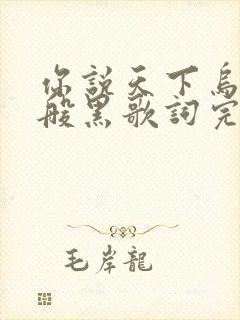 你説天下烏
般黑歌詞完
毛岸龍